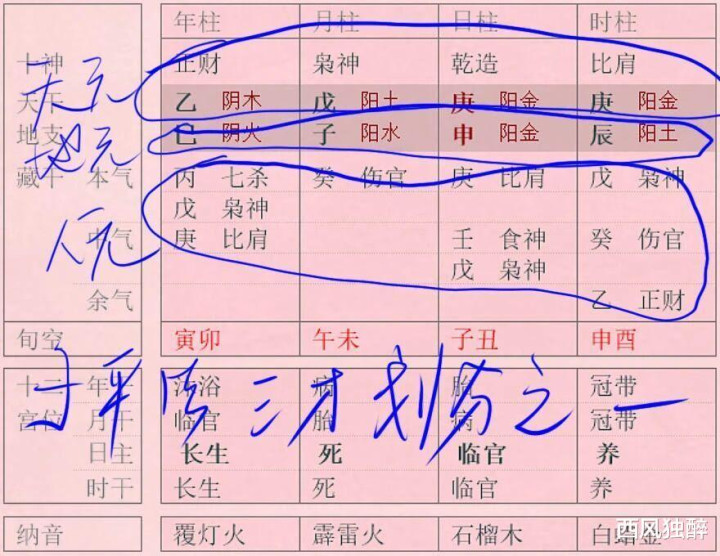 年柱 月柱 日柱 时柱
十神 正财 枭神 乾造 比肩
天元
天干 乙 阴木 戊 阳土 庚 阳金 庚 阳金
地支 巳 阴火 子 阳水 申 阳金 辰 阳土
地元
藏干 本气 丙 七杀 癸 伤官 庚 比肩 戊 枭神
戊 枭神
人元
中气 庚 比肩 壬 食神 癸 伤官
戊 枭神
余气 乙 正财
旬空 寅卯 午未 子丑 申酉
子平 三才划分之一
十二 年干 沐浴 病 胎 冠带
宫位 月干 临官 胎 病 冠带
日主 长生 死 临官 养
时干 长生 死 临官 养
纳音 覆灯火 霹雷火 石榴木 白蜡金
西风独醉